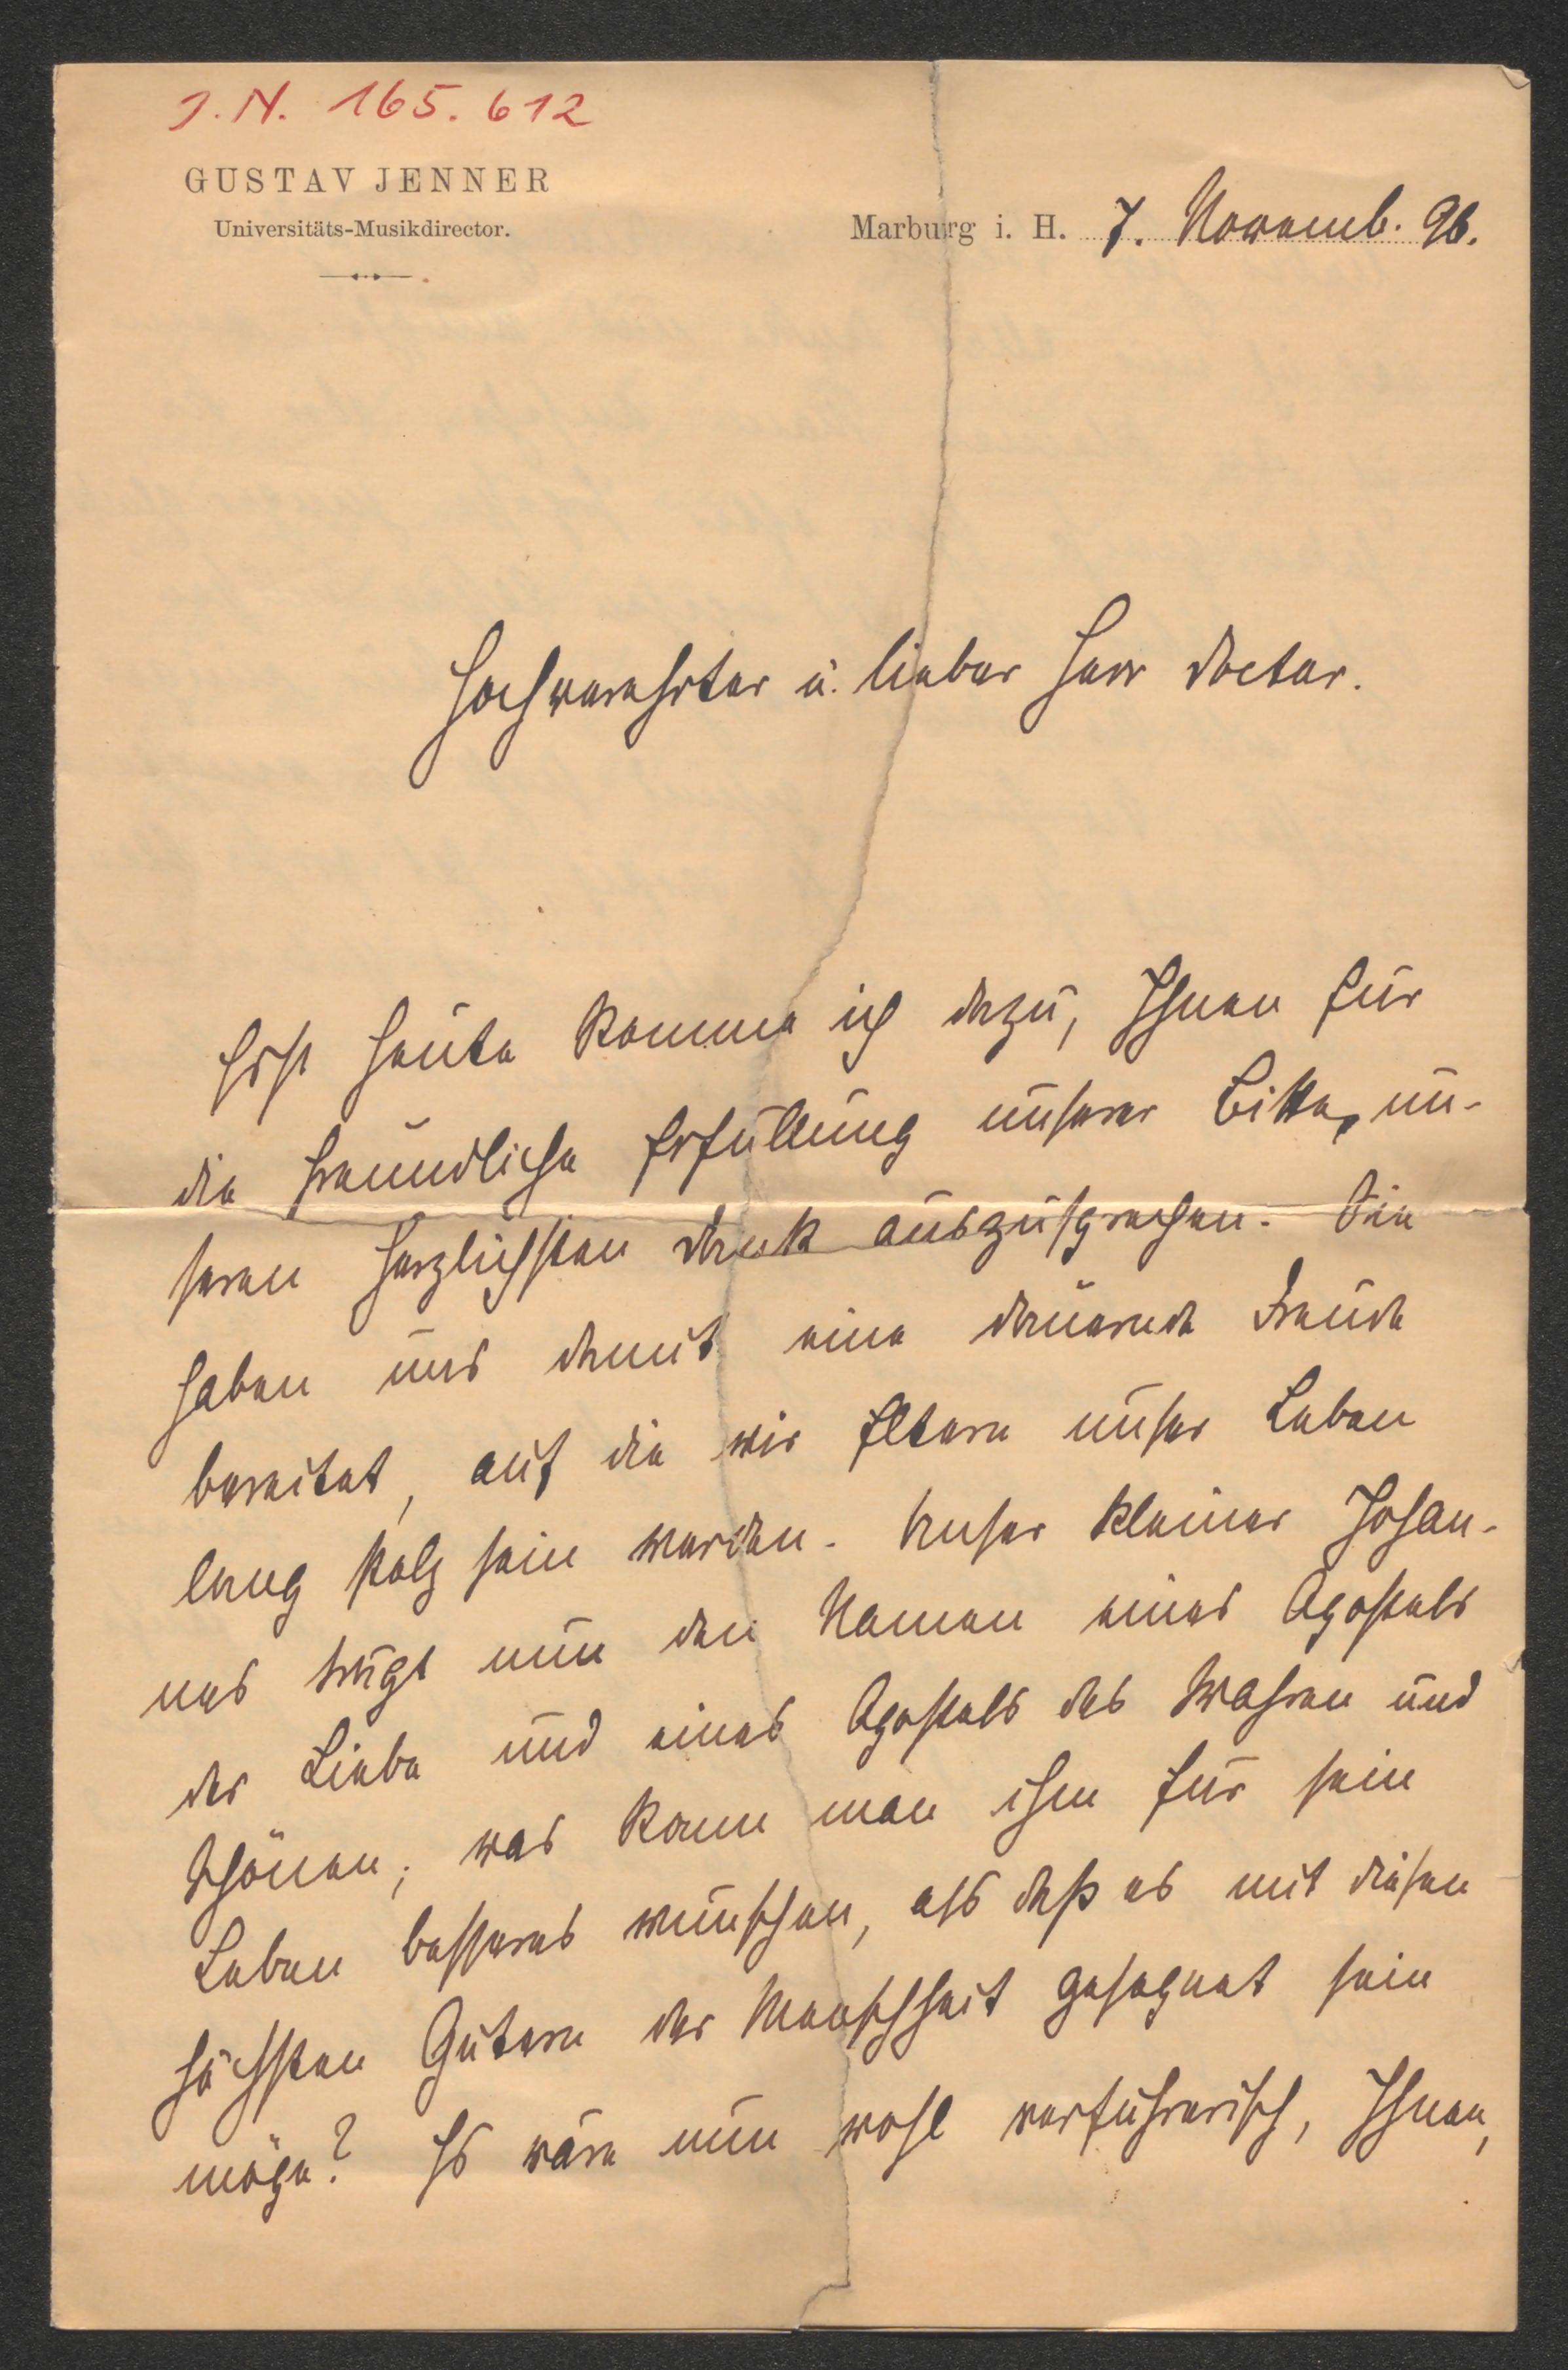 J.N. 165.612
GUSTAV JENNER
Universitäts-Musikdirector.
Marburg i. H. 7. Novemb. 96.
Hochverehrter u. lieber Herr Doctor.
Erst heute komme ich dazu, Ihnen für
die freundliche Erfüllung unserer Bitte, un-
seren herzlichsten Dank auszusprechen. Sie
haben uns damit eine dauernde Freude
bereitet, auf die wir Eltern unser Leben
lang stolz sein werden. Unser kleiner Johan-
nes trägt nun den Namen eines Apostels
der Liebe und eines Apostels des Wahren und
Schönen; was kann man ihm für sein
Leben besseres wünschen, als daß es mit diesen
höchsten Gütern der Menschheit gesegnet sein
möge? Es wäre nun wohl verführerisch, Ihnen,